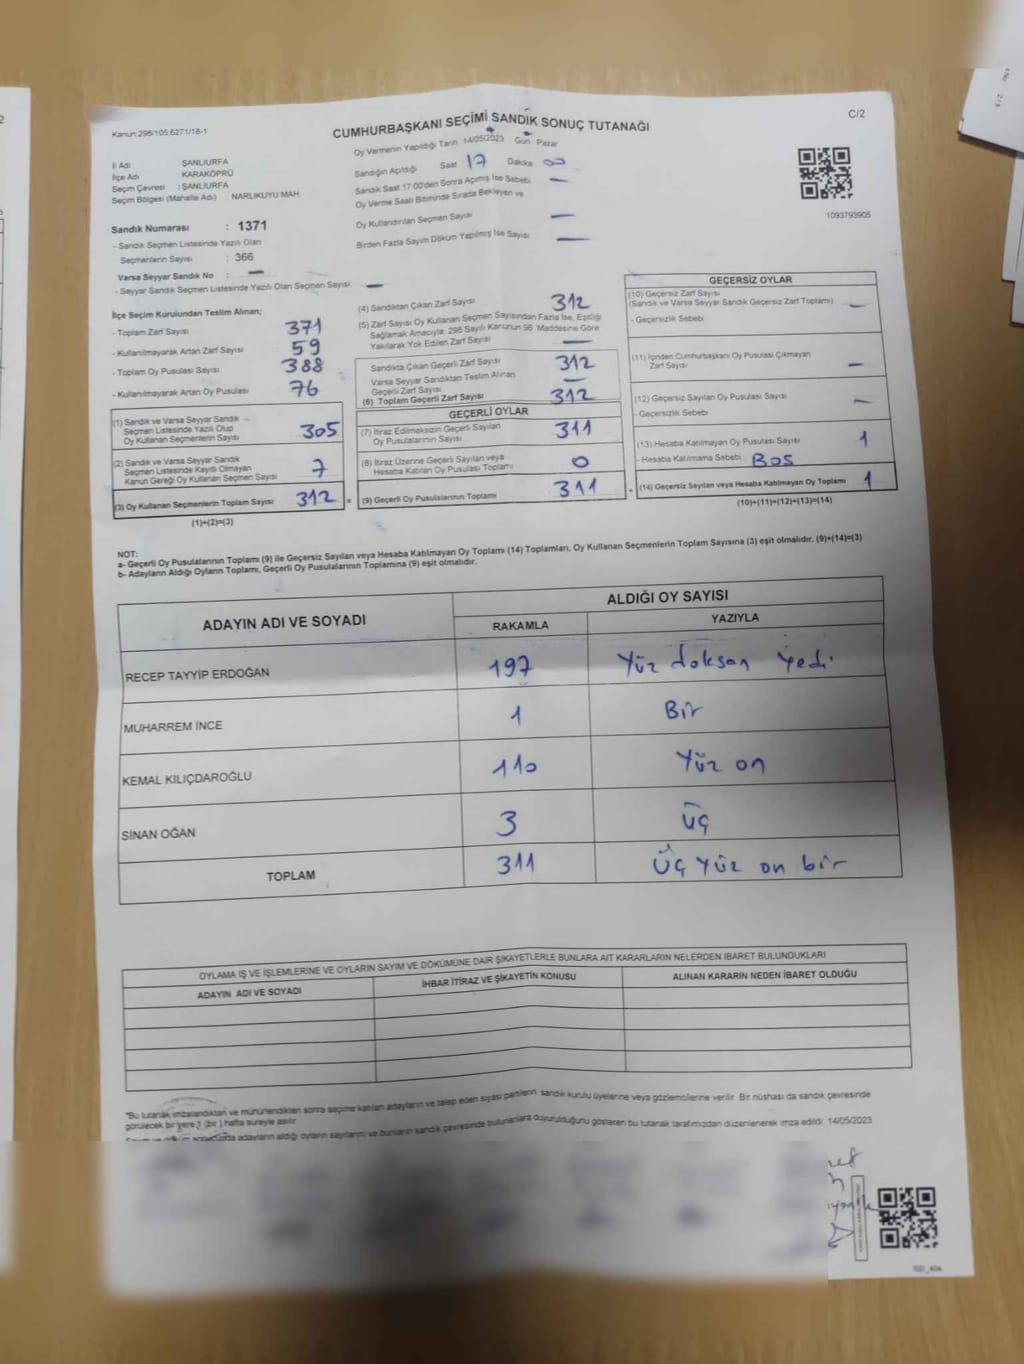 Kanun:298/105;6271/18-1
CUMHURBAŞKANI SEÇİMİ SANDIK SONUÇ TUTANAĞI
C/2
Oy Vermenin Yapıldığı Tarih 14/05/2023 Gün Pazar
İl Adı ŞANLIURFA
İlçe Adı KARAKÖPRÜ
Seçim Çevresi : ŞANLIURFA
Seçim Bölgesi (Mahalle Adı) : NARLIKUYU MAH.
Sandığın Açıldığı Saat 17 Dakika 00
Sandık Saat 17:00'den Sonra Açılmış İse Sebebi —
Oy Verme Saati Bitiminde Sırada Bekleyen ve
Oy Kullandırılan Seçmen Sayısı —
Birden Fazla Sayım Döküm Yapılmış İse Sayısı —
1093793905
Sandık Numarası : 1371
- Sandık Seçmen Listesinde Yazılı Olan
Seçmenlerin Sayısı : 366
Varsa Seyyar Sandık No : —
- Seyyar Sandık Seçmen Listesinde Yazılı Olan Seçmen Sayısı: —
İlçe Seçim Kurulundan Teslim Alınan;
- Toplam Zarf Sayısı 371
- Kullanılmayarak Artan Zarf Sayısı 59
- Toplam Oy Pusulası Sayısı 388
- Kullanılmayarak Artan Oy Pusulası 76
(1) Sandık ve Varsa Seyyar Sandık
Seçmen Listesinde Yazılı Olup
Oy Kullanan Seçmenlerin Sayısı 305
(2) Sandık ve Varsa Seyyar Sandık
Seçmen Listesinde Kaydı Olmayan
Kanun Gereği Oy Kullanan Seçmen Sayısı 7
(3) Oy Kullanan Seçmenlerin Toplam Sayısı 312 =
(1)+(2)=(3)
(4) Sandıktan Çıkan Zarf Sayısı 312
(5) Zarf Sayısı Oy Kullanan Seçmen Sayısından Fazla İse, Eşitliği
Sağlamak Amacıyla; 298 Sayılı Kanunun 98. Maddesine Göre
Yakılarak Yok Edilen Zarf Sayısı —
Sandıkta Çıkan Geçerli Zarf Sayısı 312
Varsa Seyyar Sandıktan Teslim Alınan
Geçerli Zarf Sayısı —
(6) Toplam Geçerli Zarf Sayısı 312
GEÇERLİ OYLAR
(7) İtiraz Edilmeksizin Geçerli Sayılan
Oy Pusulalarının Sayısı 311
(8) İtiraz Üzerine Geçerli Sayılan veya
Hesaba Katılan Oy Pusulası Toplamı 0
(9) Geçerli Oy Pusulalarının Toplamı 311 +
GEÇERSİZ OYLAR
(10) Geçersiz Zarf Sayısı
(Sandık ve Varsa Seyyar Sandık Geçersiz Zarf Toplamı) —
- Geçersizlik Sebebi
(11) İçinden Cumhurbaşkanı Oy Pusulası Çıkmayan
Zarf Sayısı —
(12) Geçersiz Sayılan Oy Pusulası Sayısı —
- Geçersizlik Sebebi
(13) Hesaba Katılmayan Oy Pusulası Sayısı 1
- Hesaba Katılmama Sebebi BOS
(14) Geçersiz Sayılan veya Hesaba Katılmayan Oy Toplamı 1
(10)+(11)+(12)+(13)=(14)
NOT:
a- Geçerli Oy Pusulalarının Toplamı (9) ile Geçersiz Sayılan veya Hesaba Katılmayan Oy Toplamı (14) Toplamları, Oy Kullanan Seçmenlerin Toplam Sayısına (3) eşit olmalıdır. (9)+(14)=(3)
b- Adayların Aldığı Oyların Toplamı, Geçerli Oy Pusulalarının Toplamına (9) eşit olmalıdır.
ADAYIN ADI VE SOYADI ALDIĞI OY SAYISI
RAKAMLA YAZIYLA
RECEP TAYYİP ERDOĞAN 197 Yüz doksan yedi
MUHARREM İNCE 1 Bir
KEMAL KILIÇDAROĞLU 110 Yüz on
SİNAN OĞAN 3 üç
TOPLAM 311 üç yüz on bir
OYLAMA İŞ VE İŞLEMLERİNE VE OYLARIN SAYIM VE DÖKÜMÜNE DAİR ŞİKAYETLERLE BUNLARA AİT KARARLARIN NELERDEN İBARET BULUNDUKLARI
ADAYIN ADI VE SOYADI İHBAR İTİRAZ VE ŞİKAYETİN KONUSU ALINAN KARARIN NEDEN İBARET OLDUĞU
*Bu tutanak imzalandıktan ve mühürlendikten sonra seçime katılan adayların ve talep eden siyasi partilerin sandık kurulu üyelerine veya gözlemcilerine verilir. Bir nüshası da sandık çevresinde
görülecek bir yere 1 (bir) hafta süreyle asılır.
adayların aldığı oyların sayılarını ve bunların sandık çevresinde bulunanlara duyurulduğunu gösteren bu tutanak tarafımızdan düzenlenerek imza edildi. 14/05/2023